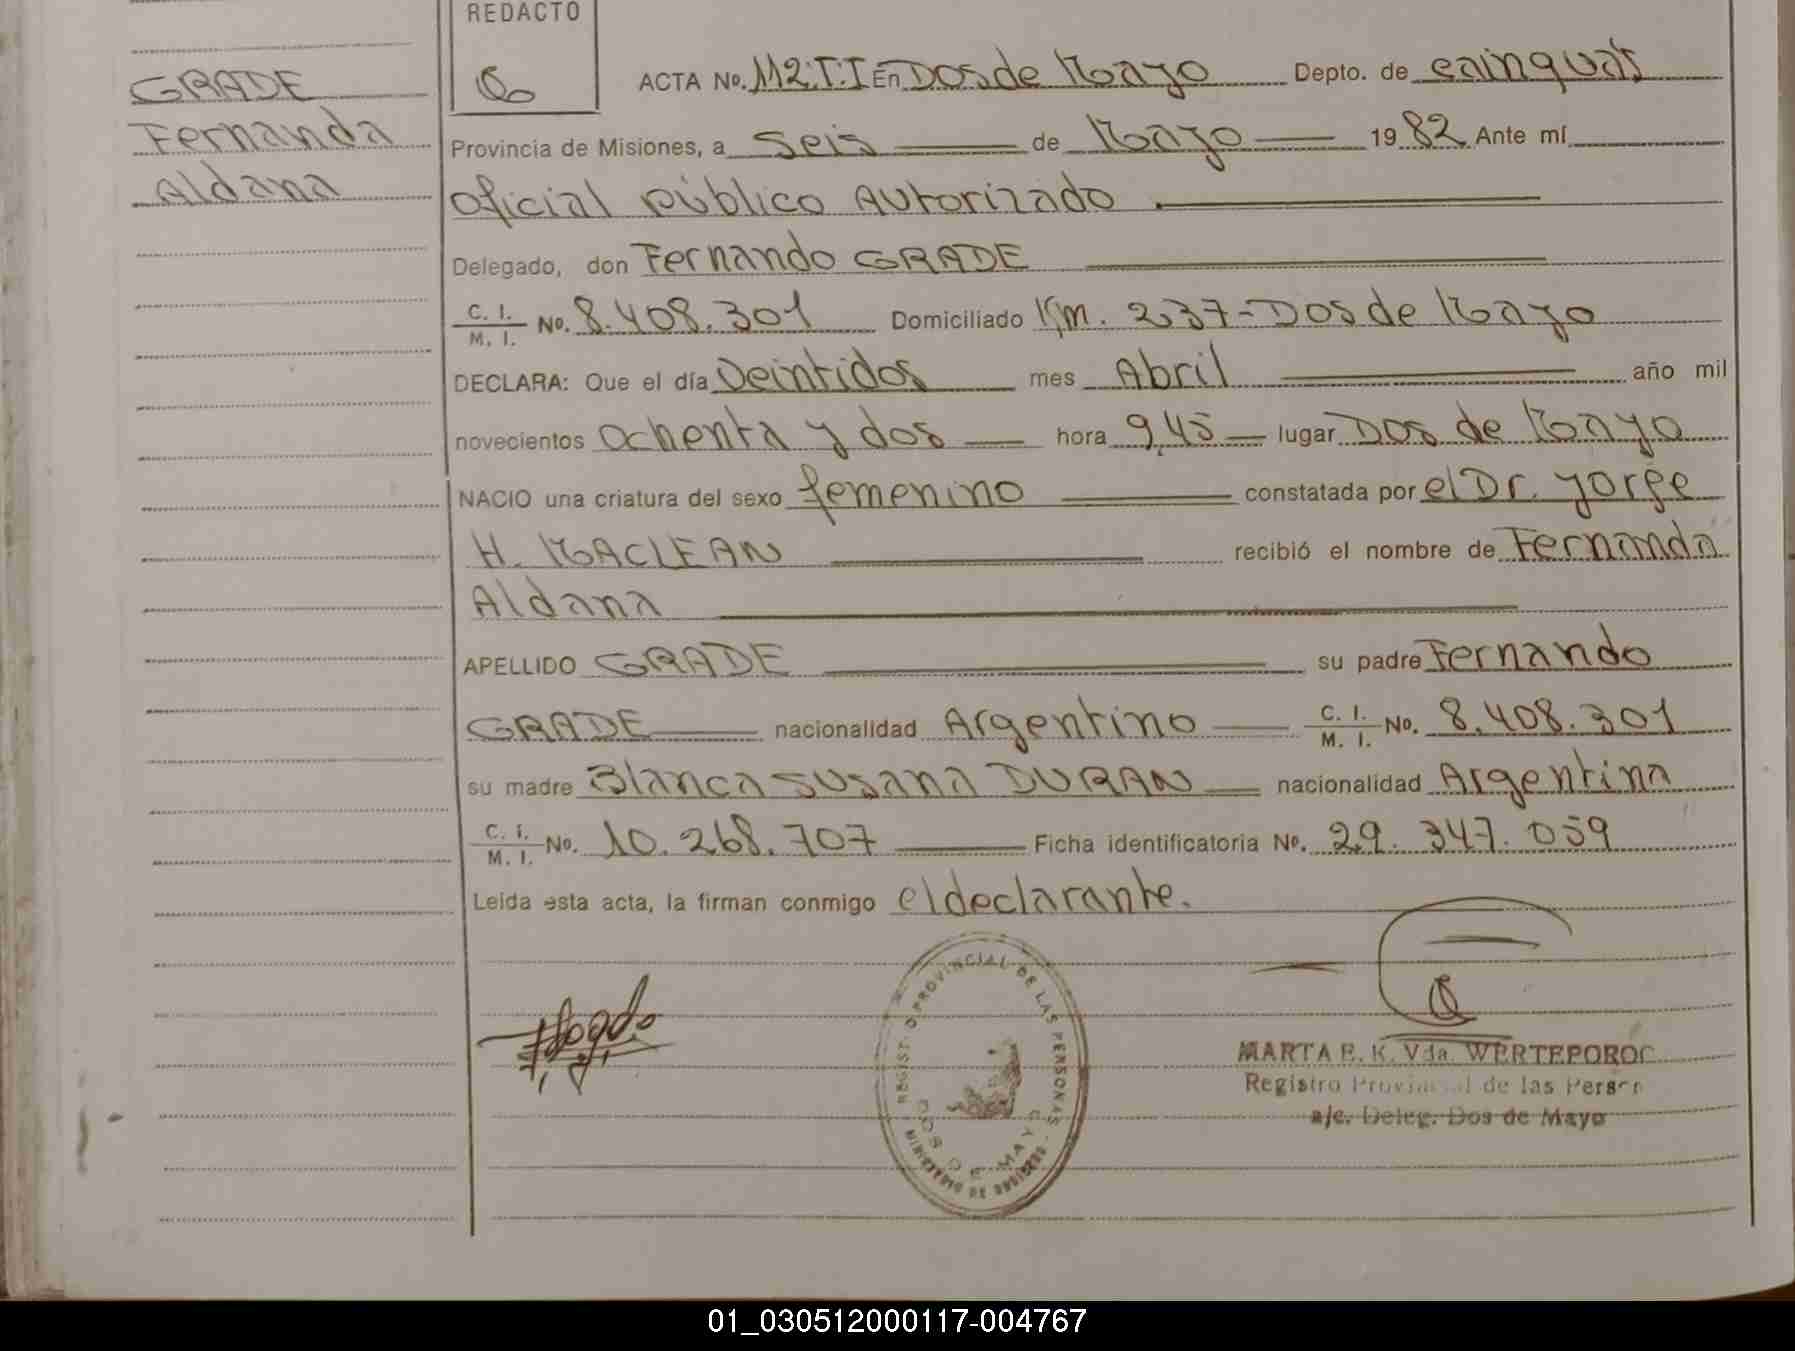 REDACTO
GRADE
Fernanda
Aldana
ACTA No. 112.T.I En Dos de Mayo Depto. de Cainguás
Provincia de Misiones, a seis de Mayo 1982 Ante mí
Oficial Público Autorizado
Delegado, don Fernando GRADE
C. I. / M. I. No. 8.408.301 Domiciliado Km. 237-Dos de Mayo
DECLARA: Que el día Veintidos mes Abril año mil
novecientos ochenta y dos hora 9,45 lugar Dos de Mayo
NACIO una criatura del sexo femenino constatada por el Dr. Jorge
H. MACLEAN recibió el nombre de Fernanda
Aldana
APELLIDO GRADE su padre Fernando
GRADE nacionalidad Argentino C. I. / M. I. No. 8.408.301
su madre Blanca Susana DURAN nacionalidad Argentina
C. I. / M. I. No. 10.268.707 Ficha identificatoria No. 29.347.059
Leída esta acta, la firman conmigo el declarante.
REGISTRO PROVINCIAL DE LAS PERSONAS
DOS DE MAYO
MINISTERIO DE GOBIERNO
MARTA E. K. Vda. WERTEPOROC
Registro Provincial de las Person
a/c. Deleg. Dos de Mayo
01_030512000117-004767